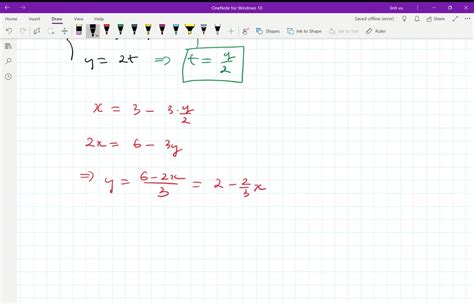 OneNote for Windows 10
linh vu
File Home Insert Draw View Help
Saved offline (error) Share
Shapes Ink to Shape Ink to Text Math
y = 2t ⇒ t = y/2
x = 3 - 3·y/2
2x = 6 - 3y
⇒ y = (6-2x)/3 = 2 - 2/3 x